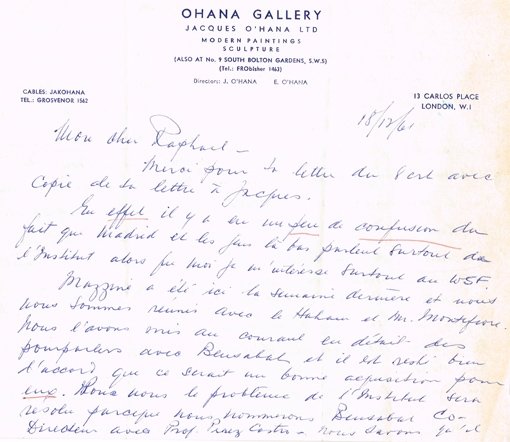 OHANA GALLERY
JACQUES O'HANA LTD
MODERN PAINTINGS
SCULPTURE
(ALSO AT No. 9 SOUTH BOLTON GARDENS, S.W.5)
(Tel.: FRObisher 1463)
Directors: J. O'HANA E. O'HANA
CABLES: JAKOHANA
TEL.: GROSVENOR 1562
13 CARLOS PLACE
LONDON, W.1
18/12/61
Mon cher Raphael –
Merci pour ta lettre du 8 crt avec
copie de ta lettre à Jacques.
En effet il y a eu un peu de confusion du
fait que Madrid et les gens là bas parlent surtout de
l'Institut alors que moi je m'intéresse surtout au WSF.
Mazzine a été ici la semaine dernière et nous
nous sommes réunis avec le Haham et Mr. Montefiore.
Nous l'avons mis au courant en détail des
pourparlers avec Bensabat et il est resté bien
d'accord que ce serait un bonne acquisition pour
eux. Pour nous le problème de l'Institut sera
résolu parceque nous nommerons Bensabat co-
Directeur avec Prof. Perez Castro – nous savons qu'il